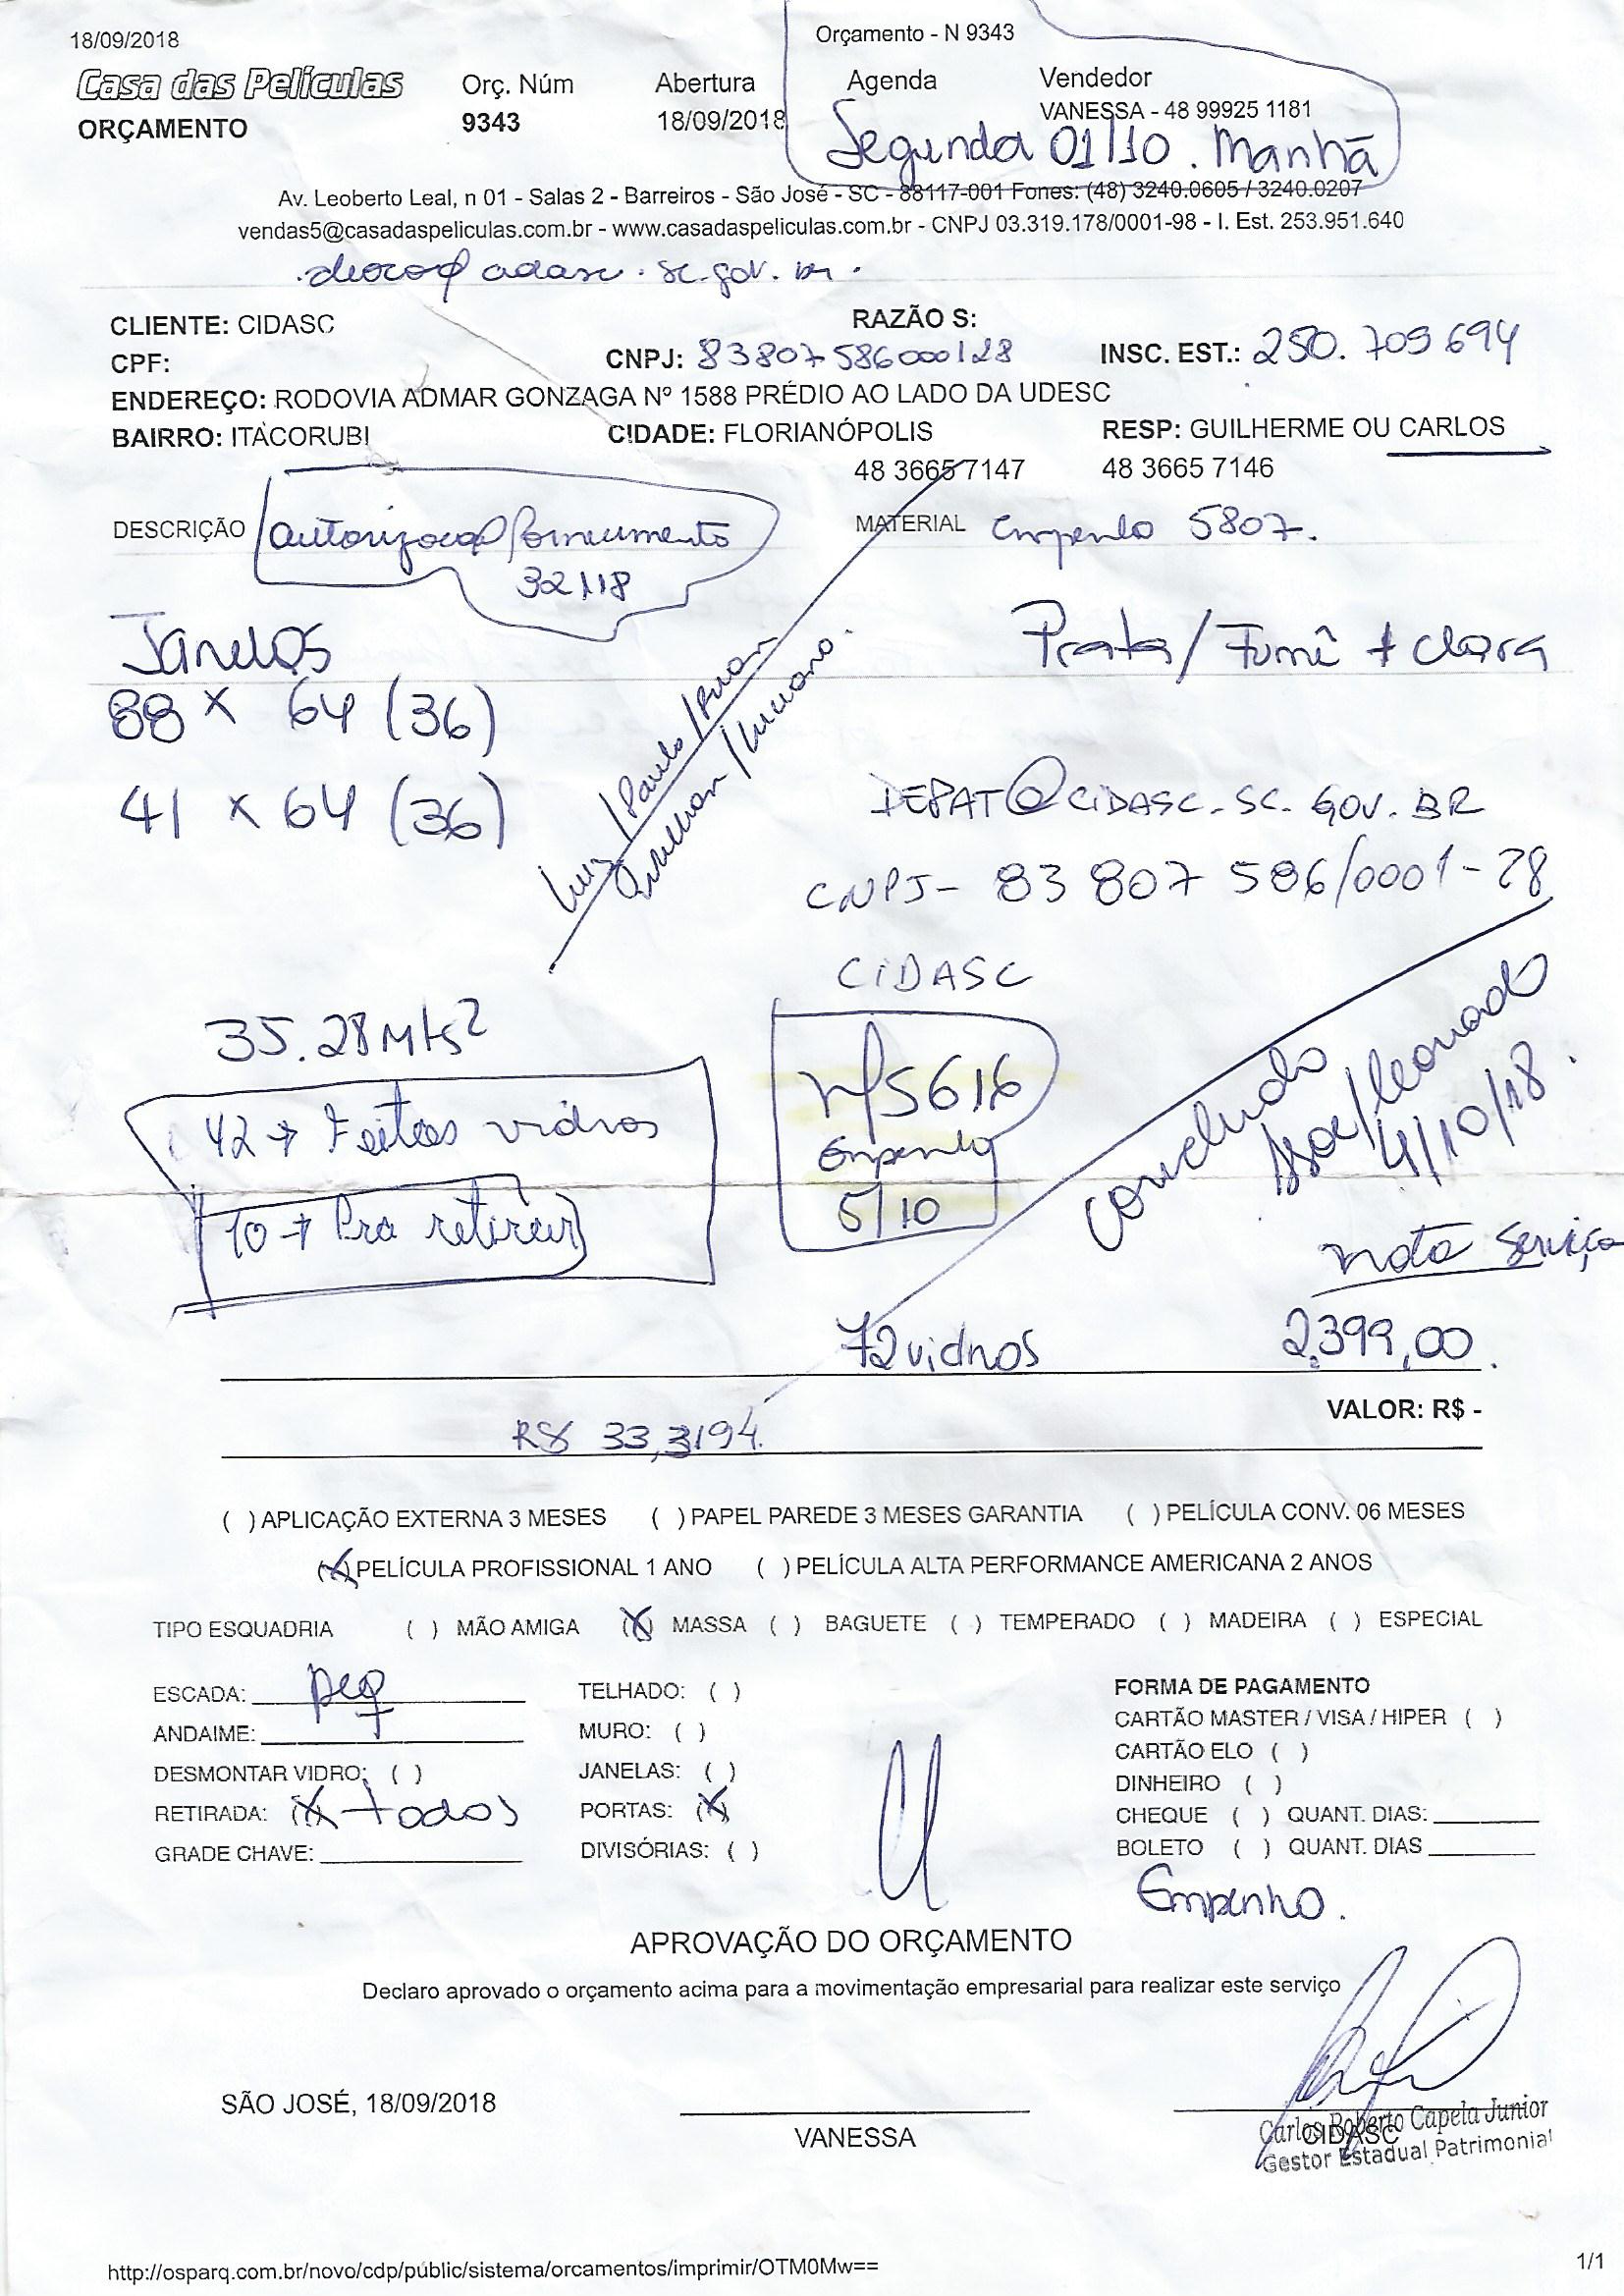 18/09/2018
Orçamento - N 9343
Casa das Películas Orç. Núm Abertura Agenda Vendedor
ORÇAMENTO 9343 18/09/2018 VANESSA - 48 99925 1181
Segunda 01/10 . Manhã
Av. Leoberto Leal, n 01 - Salas 2 - Barreiros - São José - SC - 88117-001 Fones: (48) 3240.0605 / 3240.0207
vendas5@casadaspeliculas.com.br - www.casadaspeliculas.com.br - CNPJ 03.319.178/0001-98 - I. Est. 253.951.640
.sc.gov.br.
CLIENTE: CIDASC RAZÃO S:
CPF: CNPJ: 83807586000128 INSC. EST.: 250.709694
ENDEREÇO: RODOVIA ADMAR GONZAGA Nº 1588 PRÉDIO AO LADO DA UDESC
BAIRRO: ITACORUBI CIDADE: FLORIANÓPOLIS RESP: GUILHERME OU CARLOS
48 3665 7147 48 3665 7146
DESCRIÇÃO autorização fornecimento MATERIAL Empenho 5807.
321/18
Janelas Prata/Fumê + clara
88 x 64 (36)
41 x 64 (36)
Luiz/Paulo/
DEPAT@CIDASC.SC.GOV.BR
CNPJ- 83 807 586/0001-28
CIDASC
35.28Mts2
n/5616
Empenho
5/10
42 → Feitos vidros
10 → Pra retirar
concluido
/Leonardo
4/10/18.
nota serviço
72 vidros 2.399,00.
VALOR: R$ -
R$ 33,3194.
( ) APLICAÇÃO EXTERNA 3 MESES ( ) PAPEL PAREDE 3 MESES GARANTIA ( ) PELÍCULA CONV. 06 MESES
(X) PELÍCULA PROFISSIONAL 1 ANO ( ) PELÍCULA ALTA PERFORMANCE AMERICANA 2 ANOS
TIPO ESQUADRIA ( ) MÃO AMIGA (X) MASSA ( ) BAGUETE ( ) TEMPERADO ( ) MADEIRA ( ) ESPECIAL
ESCADA: peq TELHADO: ( ) FORMA DE PAGAMENTO
ANDAIME: MURO: ( ) CARTÃO MASTER / VISA / HIPER ( )
DESMONTAR VIDRO: ( ) JANELAS: ( ) CARTÃO ELO ( )
DINHEIRO ( )
RETIRADA: (X) todos PORTAS: (X) CHEQUE ( ) QUANT. DIAS:
GRADE CHAVE: DIVISÓRIAS: ( ) BOLETO ( ) QUANT. DIAS
Empenho.
APROVAÇÃO DO ORÇAMENTO
Declaro aprovado o orçamento acima para a movimentação empresarial para realizar este serviço
SÃO JOSÉ, 18/09/2018
VANESSA CIDASC
Carlos Roberto Capela Junior
Gestor Estadual Patrimonial
http://osparq.com.br/novo/cdp/public/sistema/orcamentos/imprimir/OTM0Mw== 1/1